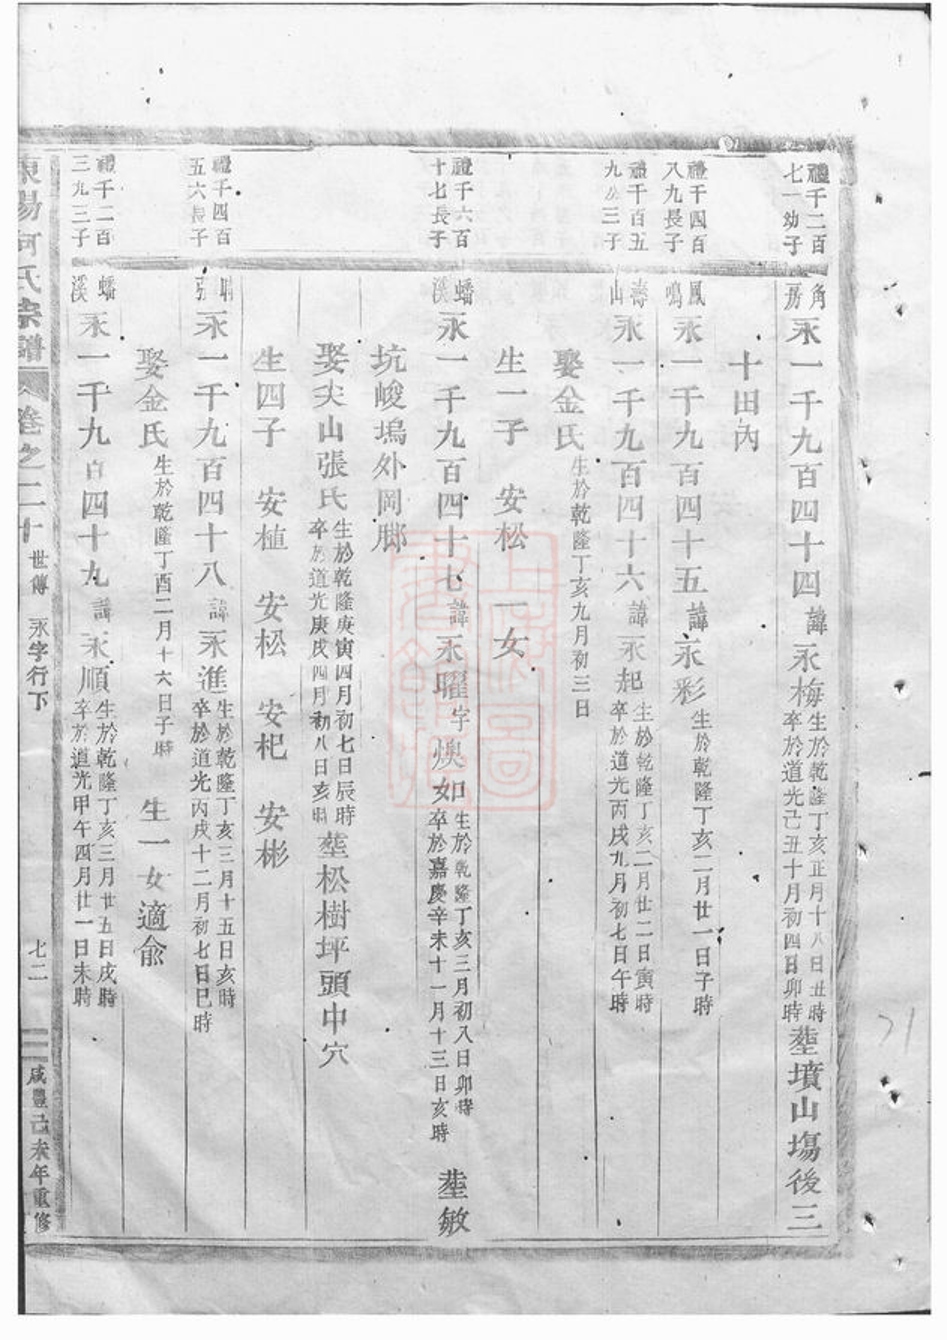 禮千二百七一幼子
角房永一千九百四十四諱永梅生於乾隆丁亥正月十八日丑時卒於道光己丑十月初四日卯時塟墳山塲後三
十田內
禮千四百八九長子
鳳鳴永一千九百四十五諱永彩生於乾隆丁亥二月廿一日子時
禮千百五九三子
山永一千九百四十六諱永起生於乾隆丁亥二月廿二日寅時卒於道光丙戌九月初七日午時
娶金氏生於乾隆丁亥九月初三日
生一子 安松 一女
禮千六百十七長子
蟠溪永一千九百四十七諱永曜字燠如生於乾隆丁亥三月初入日卯時卒於嘉慶辛未十一月十三日亥時 塟敏
坑峻塢外岡脚
娶尖山張氏生於乾隆庚寅四月初七日辰時卒於道光庚戌四月初八日亥時塟松樹坪頭中穴
生四子 安植 安松 安杞 安彬
禮千四百五六長子
永一千九百四十八諱永進生於乾隆丁亥三月十五日亥時卒於道光丙戌十二月初七日巳時
娶金氏生於乾隆丁酉二月十六日子時 生一女適俞
禮千二百三九三子
蟠溪永一千九百四十九諱永順生於乾隆丁亥三月廿五日戌時卒於道光甲午四月廿一日未時
東陽何氏宗譜 卷之二十 世傳 永字行下 七二 咸豐己未年重修
71